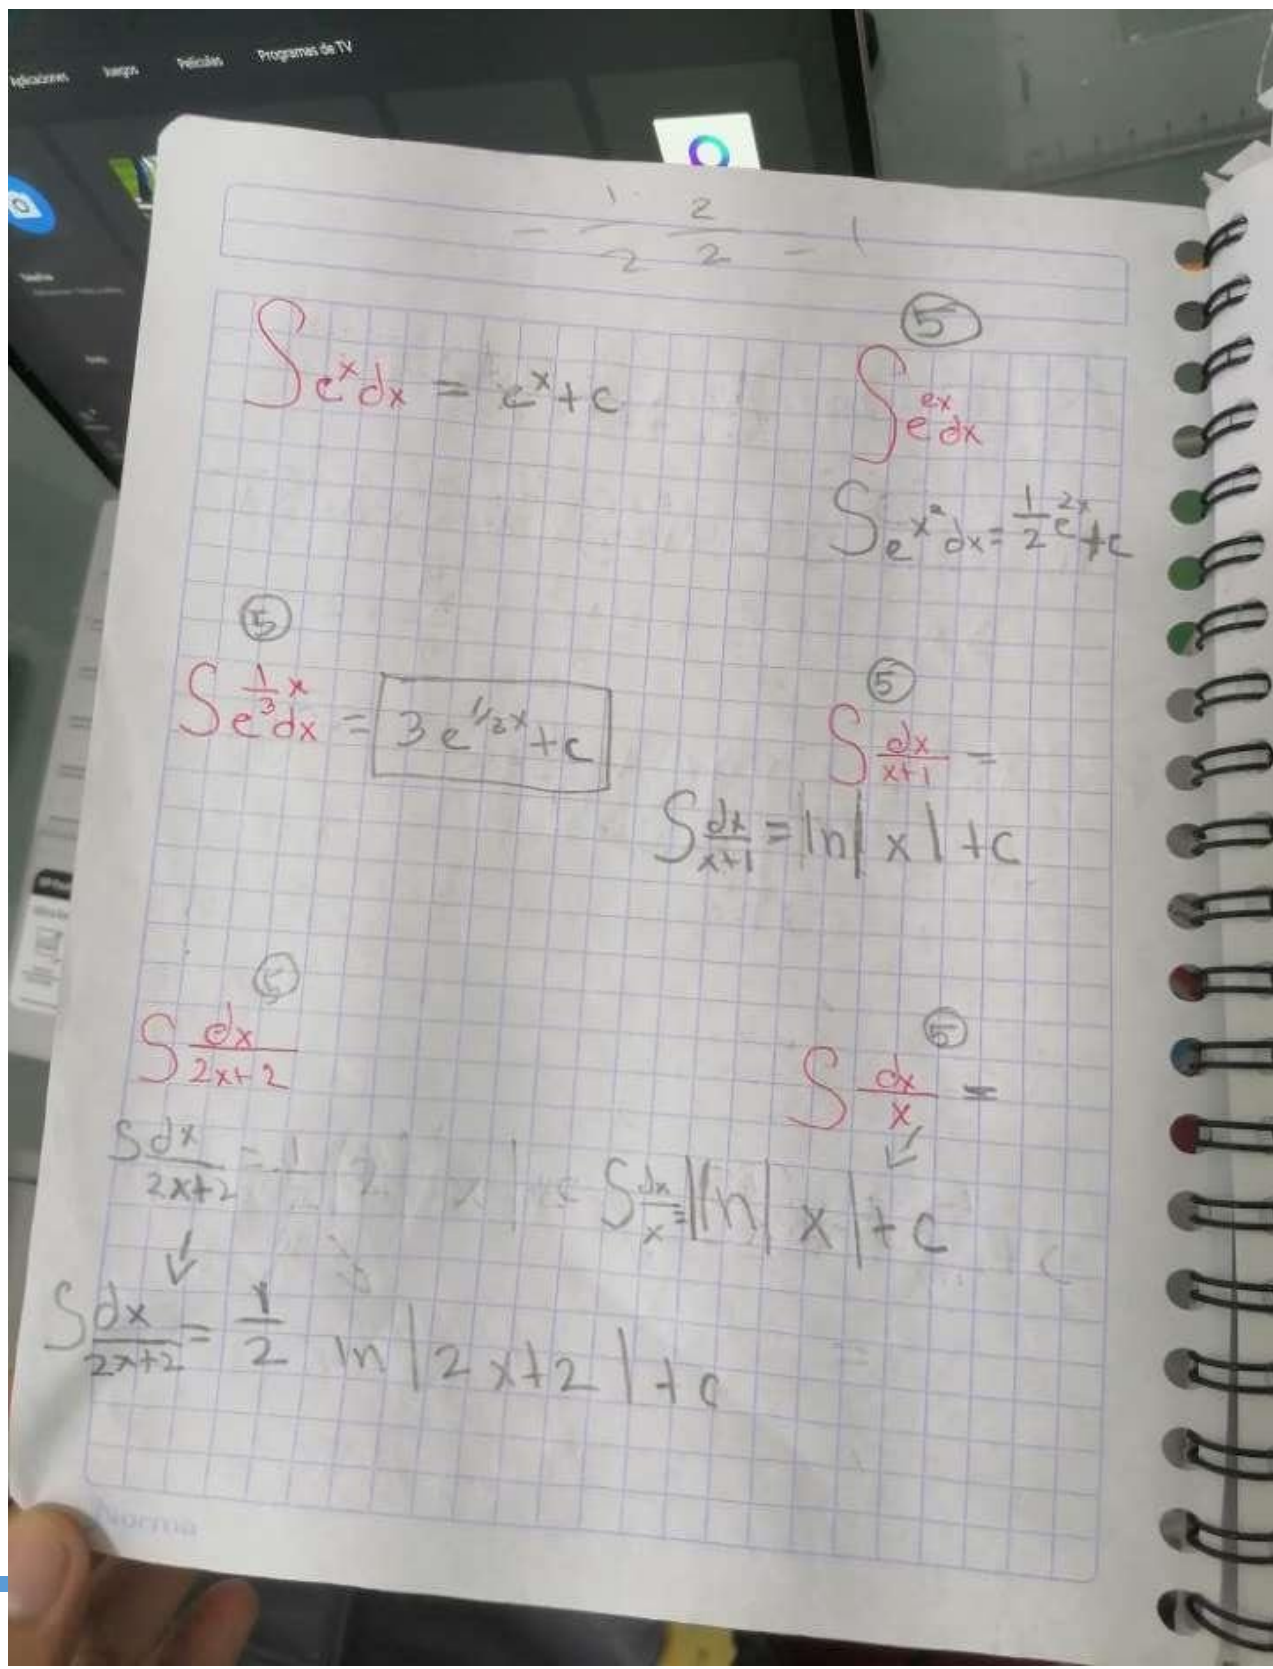 Aplicaciones Juegos Películas Programas de TV
- 1/2 2/2 - 1
∫ e^x dx = e^x + c
⑤
∫ e^{ex} dx
∫ e^{x^2} dx = 1/2 e^{2x} + c
⑤
∫ e^{1/3 x} dx = 3 e^{1/3 x} + c
⑤
∫ dx/(x+1) =
∫ dx/(x+1) = ln | x | + c
⑤
∫ dx/(2x+2)
⑤
∫ dx/x =
∫ dx/(2x+2) = 1
∫ dx/x = ln | x | + c
∫ dx/(2x+2) = 1/2 ln | 2x+2 | + c
Norma